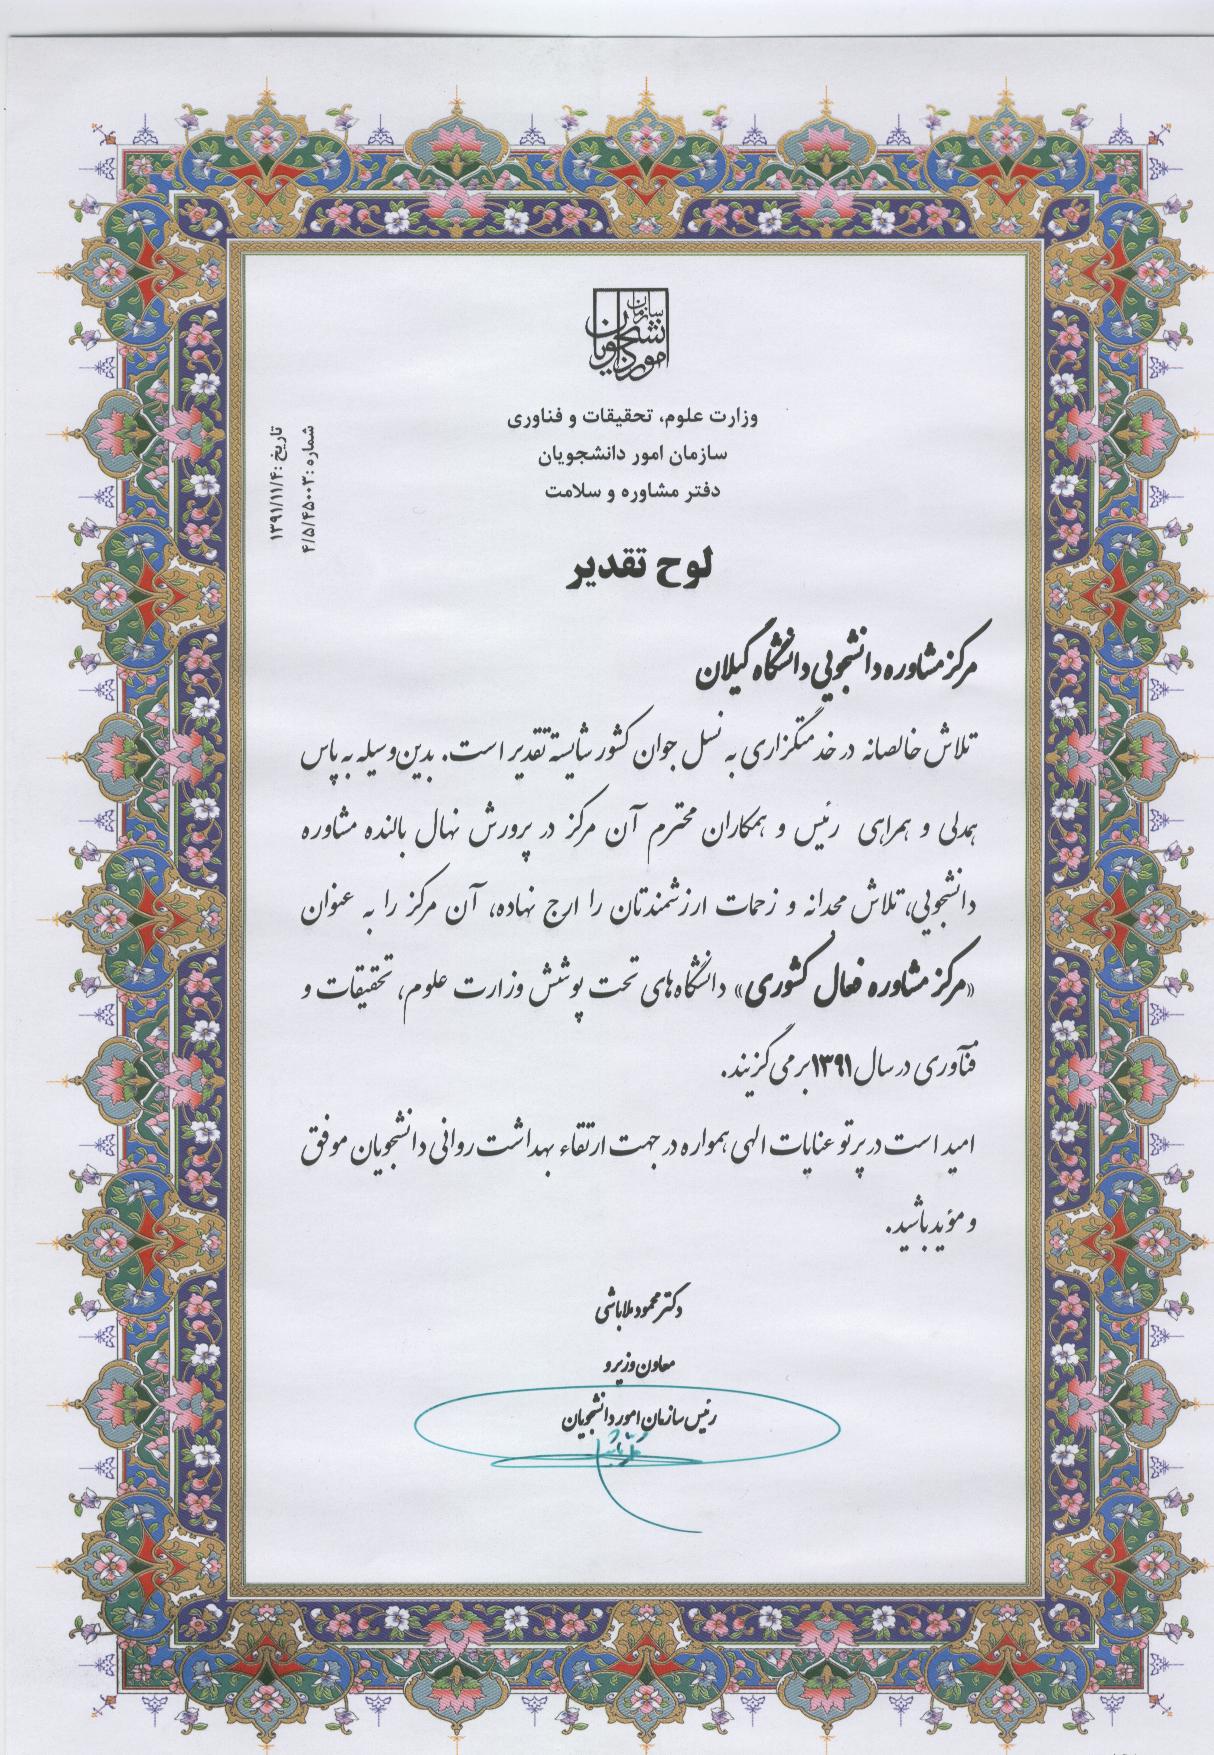 سازمان امور دانشجویان
وزارت علوم، تحقیقات و فناوری
سازمان امور دانشجویان
دفتر مشاوره و سلامت
تاریخ :۱۳۹۱/۱۱/۴
شماره :۴/۵/۴۵۰۰۳
لوح تقدیر
مرکز مشاوره دانشجویی دانشگاه گیلان
تلاش خالصانه در خدمتگزاری به نسل جوان کشور شایسته تقدیر است. بدین وسیله به پاس
همدلی و همراهی رئیس و همکاران محترم آن مرکز در پرورش نهال بالنده مشاوره
دانشجویی، تلاش مجدانه و زحمات ارزشمندتان را ارج نهاده، آن مرکز را به عنوان
«مرکز مشاوره فعال کشوری» دانشگاه‌های تحت پوشش وزارت علوم، تحقیقات و
فنآوری در سال ۱۳۹۱ بر می گزیند.
امید است در پرتو عنایات الهی همواره در جهت ارتقاء بهداشت روانی دانشجویان موفق
و مؤید باشید.
دکتر محمود ملاباشی
معاون وزیر و
رئیس سازمان امور دانشجویان